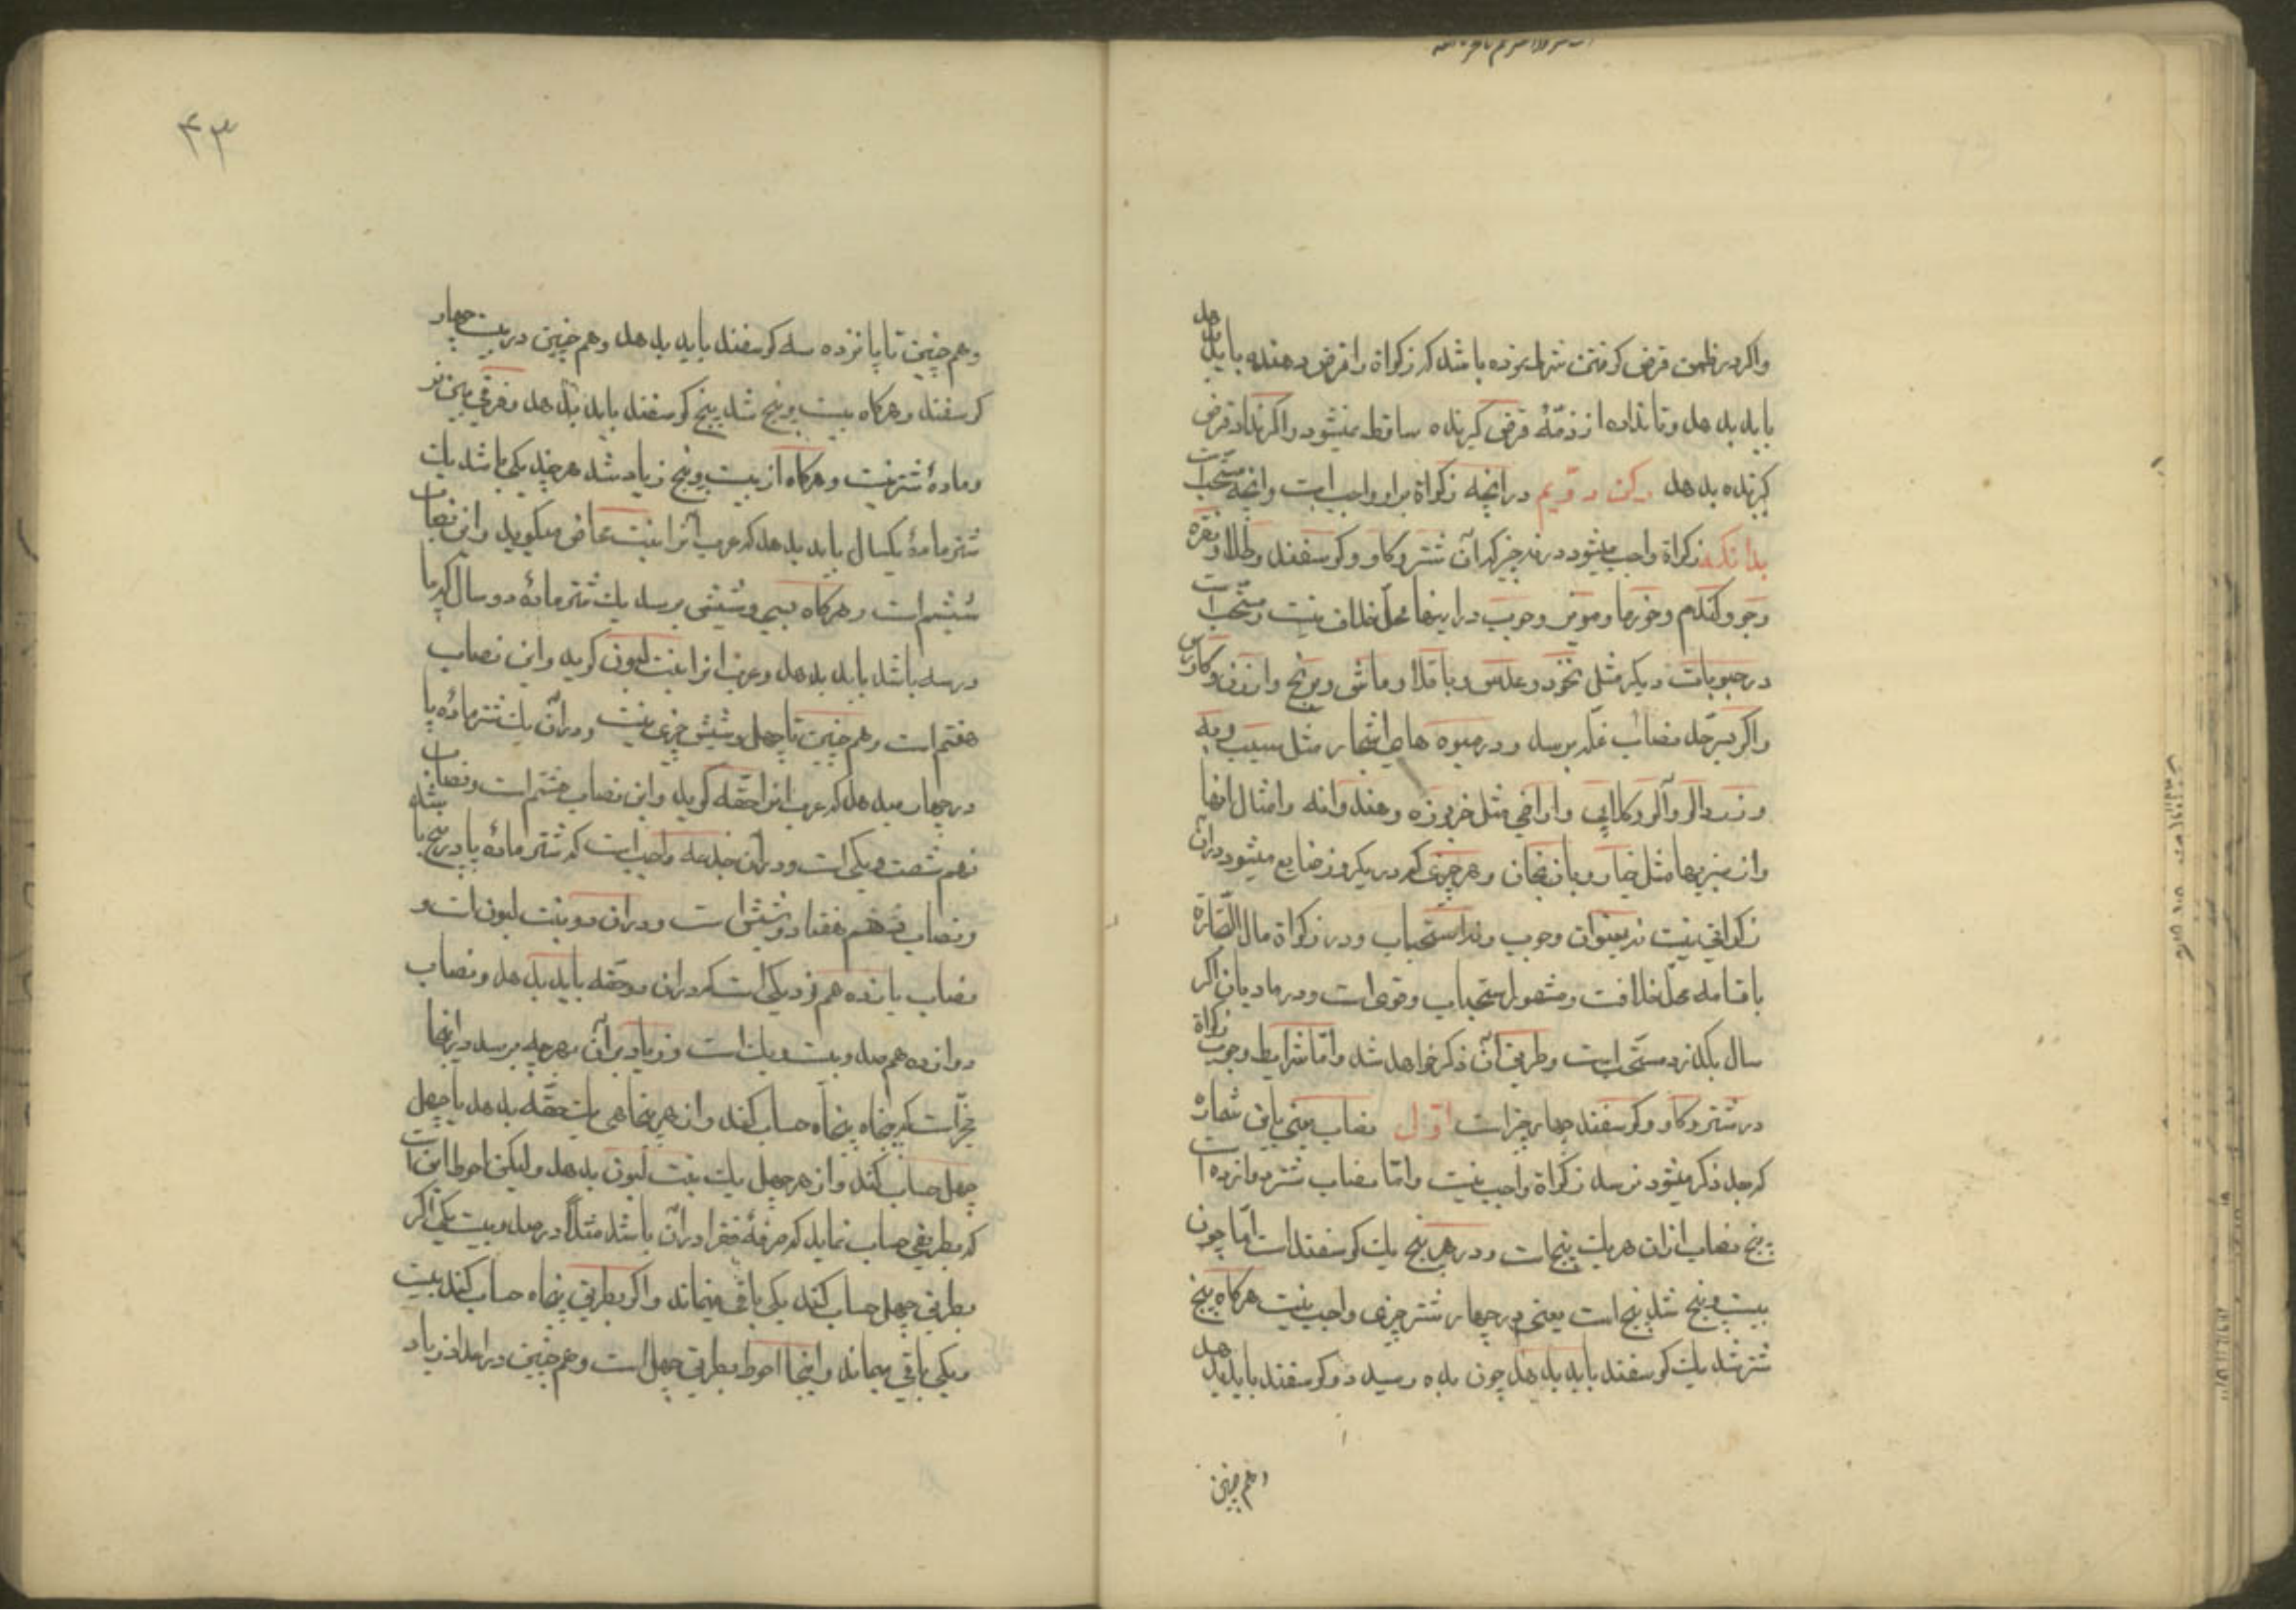 واکر در ظمن قرض کرفتن شرط نموده باشد که زکواة را قرض دهنده باید بدهد
باید بدهد وتا نداده از ذمّهٔ قرض کیرنده ساقط نمیشود واکر نداد قرض
کیرنده بدهد رکن دویم در انچه زکواة بر او واجب است وانچه مستحبّ است
بدانکه زکواة واجب میشود در نه چیز که آن شتر وکاو وکوسفند وطلا ونقره
وجو وکندم وخورما ومویز وجوب در اینها محلّ خلاف نیست ومستحبّ است
در حبوبات دیکر مثل نخود وعدس وباقلا وماش وبرنج وارزن وکاورس
واکر بسرحدّ نصاب غلّه برسد ودر میوه های اشجار مثل سیب وبه
وزردالو وآلو وکلابی واراضی مثل خربوزه وهندوانه وامثال اینها
واز سبزیها مثل خیار وبادنجان وهر چیزی که در یکروز ضایع میشود در آن
زکواتی نیست نه بعنوان وجوب ونه استحباب ودر زکواة مال التّجارة
باقسامه محلّ خلافست ومشهور استحباب وقوی است ودر مادیان اکر
سال بکذرد مستحبّ است وطریق آن ذکر خواهد شد وامّا شرایط وجوب زکواة
در شتر وکاو وکوسفند چهار چیز است اوّل نصاب یعنی باین شماره
که حال ذکر میشود نرسد زکواة واجب نیست وامّا نصاب شتر دوازده است
پنج نصاب از ان هر یک پنج است ودر هر پنج یک کوسفند است امّا چون
بیست وپنج شد پنج است یعنی در چهار شتر چیزی واجب نیست هرکاه پنج
شتر شد یک کوسفند باید بدهد چون بده رسید دو کوسفند باید بدهد
وهم چنین
۴۳
وهم چنین تا پانزده سه کوسفند باید بدهد وهم چنین در بیست چهار
کوسفند وهرکاه بیست وپنج شد پنج کوسفند باید بدهد وفرقی میان نر
ومادهٔ شتر نیست وهرکاه از بیست وپنج زیاد شد هرچند یکی باشد یک
شتر مادهٔ یکسال باید بدهد که عرب آنرا بنت مخاض میکویند واین نصاب
ششم است وهرکاه بسی وشش برسد یک شتر مادهٔ دو سال که پا
در سه باشد باید بدهد وعرب انرا بنت لبون کوید واین نصاب
هفتم است وهم چنین تا چهل وشش چیزی نیست ودر آن یک شتر مادهٔ پا
در چهار میدهد که عرب انرا حقّه کوید واین نصاب هشتم است ونصاب
نهم شصت ویکی است ودر آن جذعه واجب است که شتر مادهٔ پا در پنج باشد
ونصاب دهم هفتاد وشش است ودران دو بنت لبون است و
نصاب یازدهم نود یکی است که دران دو حقّه باید بدهد ونصاب
دوازدهم صد وبیست ویک است وزیاد بر آن بهرچه برسد در اینها
مخیّر است که پنجاه پنجاه حساب کند واز هر پنجاهی یک حقّه بدهد یا چهل
چهل حساب کند واز هر چهل یک بنت لبون بدهد ولیکن احوط این است
که بطریقی حساب نماید که صرفهٔ فقرا در آن باشد مثلاً در صد وبیست یکی اکر
بطریق چهل حساب کند یکی باقی میماند واکر بطریق پنجاه حساب کند بیست
ویکی باقی میماند واینجا احوط بطریق چهل است وهم چنین در اعداد زیاد